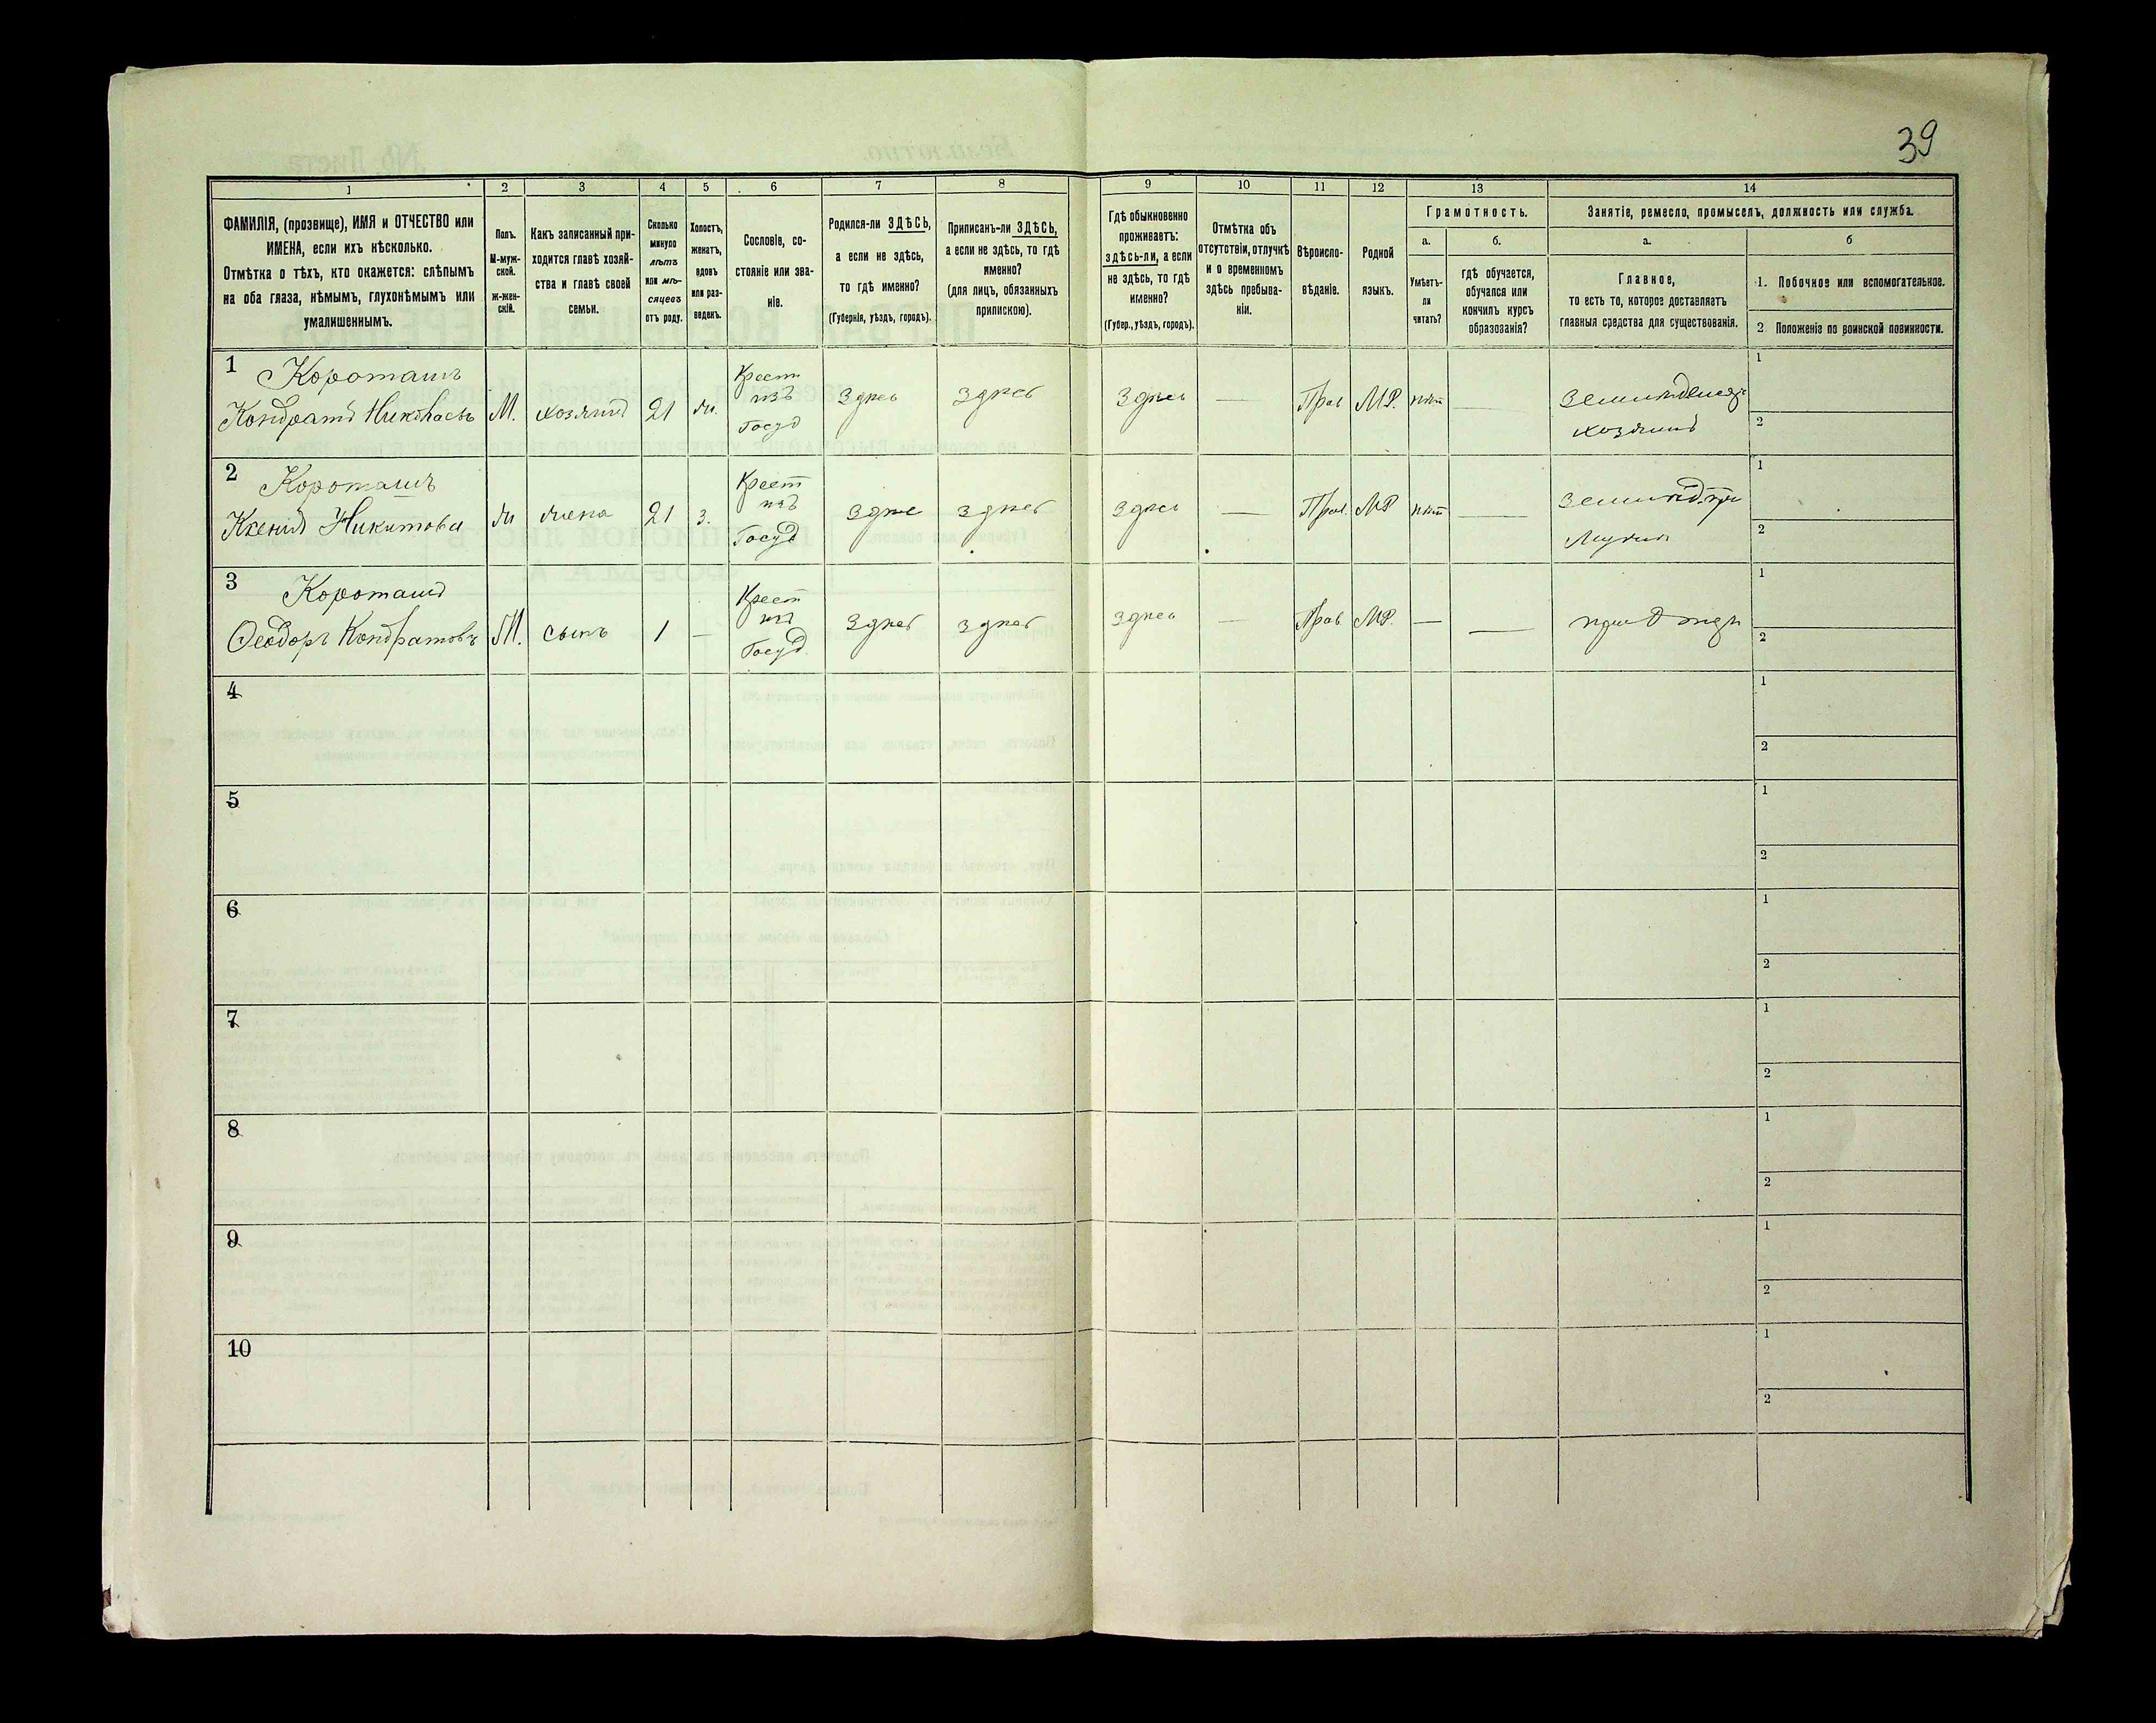 39
1 2 3 4 5 6 7 8 9 10 11 12 13 14
ФАМИЛІЯ, (прозвище), ИМЯ и ОТЧЕСТВО или
ИМЕНА, если ихъ нѣсколько.
Отмѣтка о тѣхъ, кто окажется: слѣпымъ
на оба глаза, нѣмымъ, глухонѣмымъ или
умалишеннымъ.
Полъ.
М-муж-
ской.
ж-жен-
скій.
Какъ записанный при-
ходится главѣ хозяй-
ства и главѣ своей
семьи.
Сколько
минуло
лѣтъ
или мѣ-
сяцевъ
отъ роду.
Холостъ,
женатъ,
вдовъ
или раз-
веденъ.
Сословіе, со-
стояніе или зва-
ніе.
Родился-ли ЗДѢСЬ,
а если не здѣсь,
то гдѣ именно?
(Губернія, уѣздъ, городъ).
Приписанъ-ли ЗДѢСЬ,
а если не здѣсь, то гдѣ
именно?
(для лицъ, обязанныхъ
припискою).
Гдѣ обыкновенно
проживаетъ:
здѣсь-ли, а если
не здѣсь, то гдѣ
именно?
(Губер., уѣздъ, городъ).
Отмѣтка объ
отсутствіи, отлучкѣ
и о временномъ
здѣсь пребыва-
ніи.
Вѣроиспо-
вѣданіе.
Родной
языкъ.
Грамотность.
а.
Умѣетъ-
ли
читать?
б.
гдѣ обучается,
обучался или
кончилъ курсъ
образованія?
Занятіе, ремесло, промыселъ, должность или служба.
а.
Главное,
то есть то, которое доставляетъ
главныя средства для существованія.
б
1. Побочное или вспомогательное.
2 Положеніе по воинской повинности.
1 Короташъ
Кондратъ М. хозяинъ 21 ж. Крест
изъ
Госуд Здѣсь Здѣсь Здѣсь — Прав М.Р. нѣт —
хозяинъ
1
2
2 Короташъ
Ксенія Никитова ж жена 21 з. Крест
изъ
Госуд здѣс здѣсь здѣсь — Прав. МР нѣт —
1
2
3 Короташъ
Ѳеодоръ Кондратовъ М. сынъ 1 — Крест
изъ
Госуд. Здѣсь здѣсь здѣсь — Прав МР. — —
при отцѣ
1
2
4 1
2
5 1
2
6 1
2
7 1
2
8 1
2
9 1
2
10 1
2